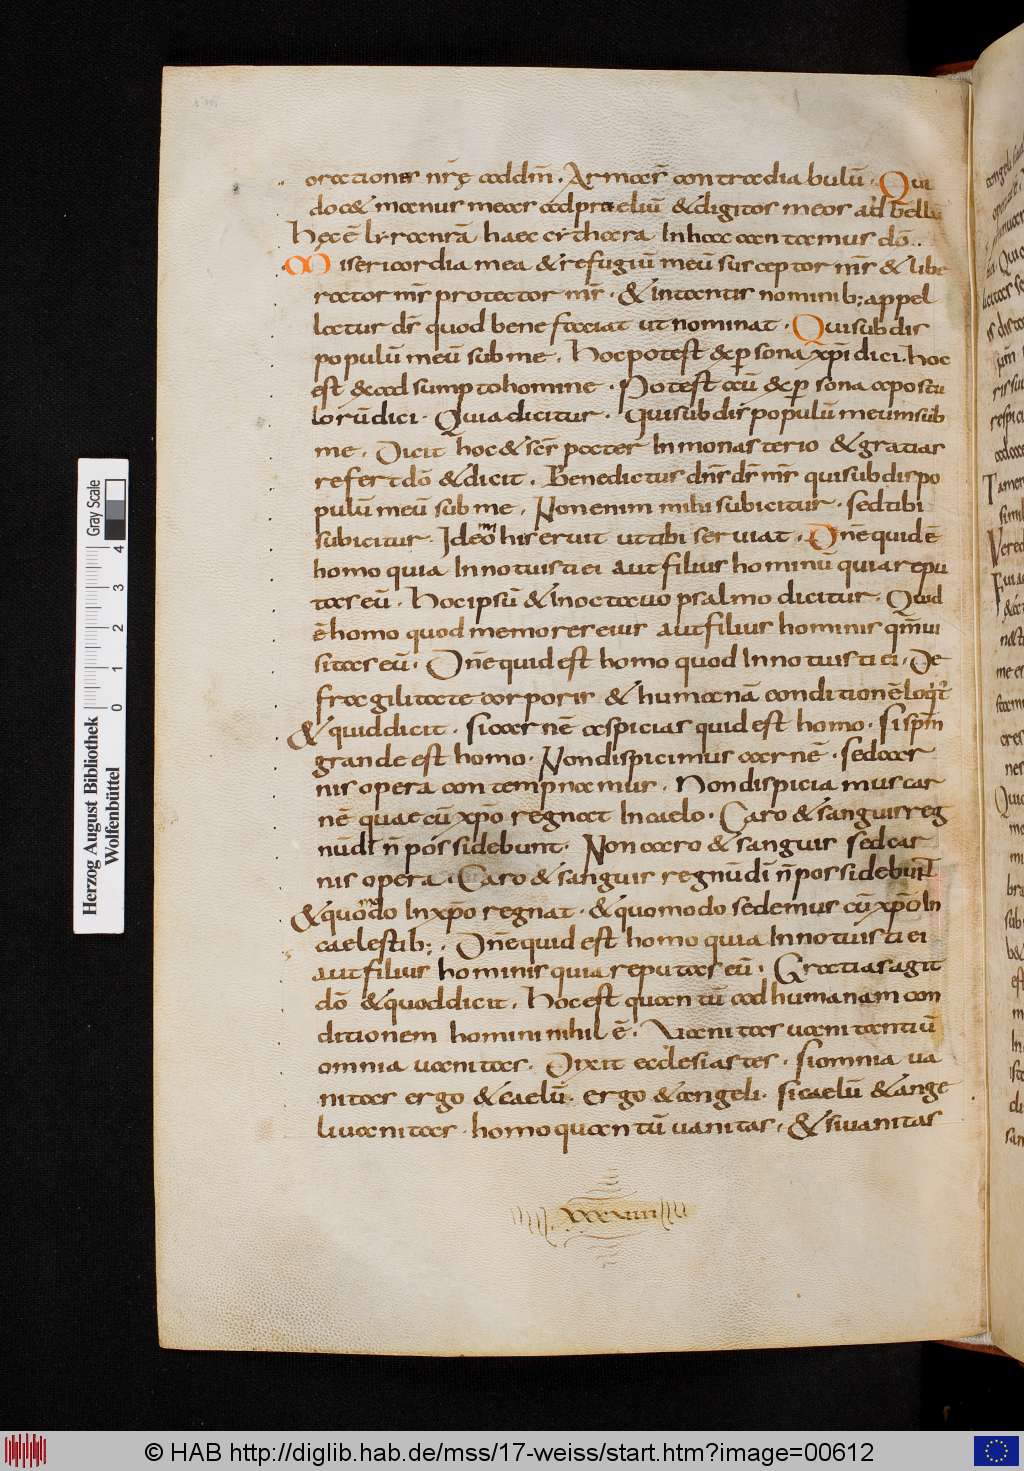 orationis nr̄ę addm̄. Armaᷤ contradiabulū. Qui
docet manus meas adpraeliū &digitos meos ad bellū
Hęcē lyranrā haec cythara Inhac cantamus dō..
Misericordia mea &refugiū meū susceptor ms̄ &libe
rator ms̄ protector ms̄. &intantis nominib; appel
latur ds̄ quod benefaciat ut nominat. Quisubdis
populū meū subme. hocpotest &ꝑsona xp̄i dici. hoc
est &adsumptohomine. Potest aū &ꝑsona aposto
lorūdici. Quiadicitur. quisubdis populū meumsub
me. Dicit hoc&scs̄ pater Inmonasterio &gratias
refertdō &dicit. Benedictus dn̄s ds̄ ms̄ quisubdispo
pulū meū subme. Nonenim mihi subicitur. sedtibi
subicitur. Ideo mihiseruit uttibi seruiat. Dn̄e quidē
homo quia Innotuisti ei autfilius hominū quiarepu
tas eū. hocipsū &Inoctauo psalmo dicitur. Quid
ē homo quod memoreseius autfilius hominis qm̄ui
sitas eū. Dn̄e quidest homo quod Innotuisti ei. De
fragilitate corporis &humanā conditionē loq̇t̄
&quiddicit. sicarnē aspicias quid est homo. sispm̄
grande est homo. Nondispicimus carnē. sedcar
nis opera contempnamus. Nondispiciamuscar
nē quaecū xp̄o regnat Incaelo. Caro &sanguisreg
nūdī n̄ possidebunt. Noncaro &sanguis sedcar
nis opera. Caro &sanguis regnūdī n̄possidebunt
&quomodo Inxp̄o regnat. &quomodo sedemus cū xp̄o In
caelestib;. Dn̄e quid est homo quia Innotuisti ei
autfilius hominis quiareputas eū. Gratiasagit
dō &quoddicit. hocest quantū adhumanam con
ditionem homini nihil ē. Uanitas uanitantiū
omnia uanitas. Dixit ecclesiastes. siomnia ua
nitas ergo &caelū. ergo &angeli. sicaelū &ange
liuanitas. homoquantū uanitas. &siuanitas
xxxviiii
Herzog August Bibliothek
Wolfenbüttel
Gray Scale
0 1 2 3 4
© HAB http://diglib.hab.de/mss/17-weiss/start.htm?image=00612